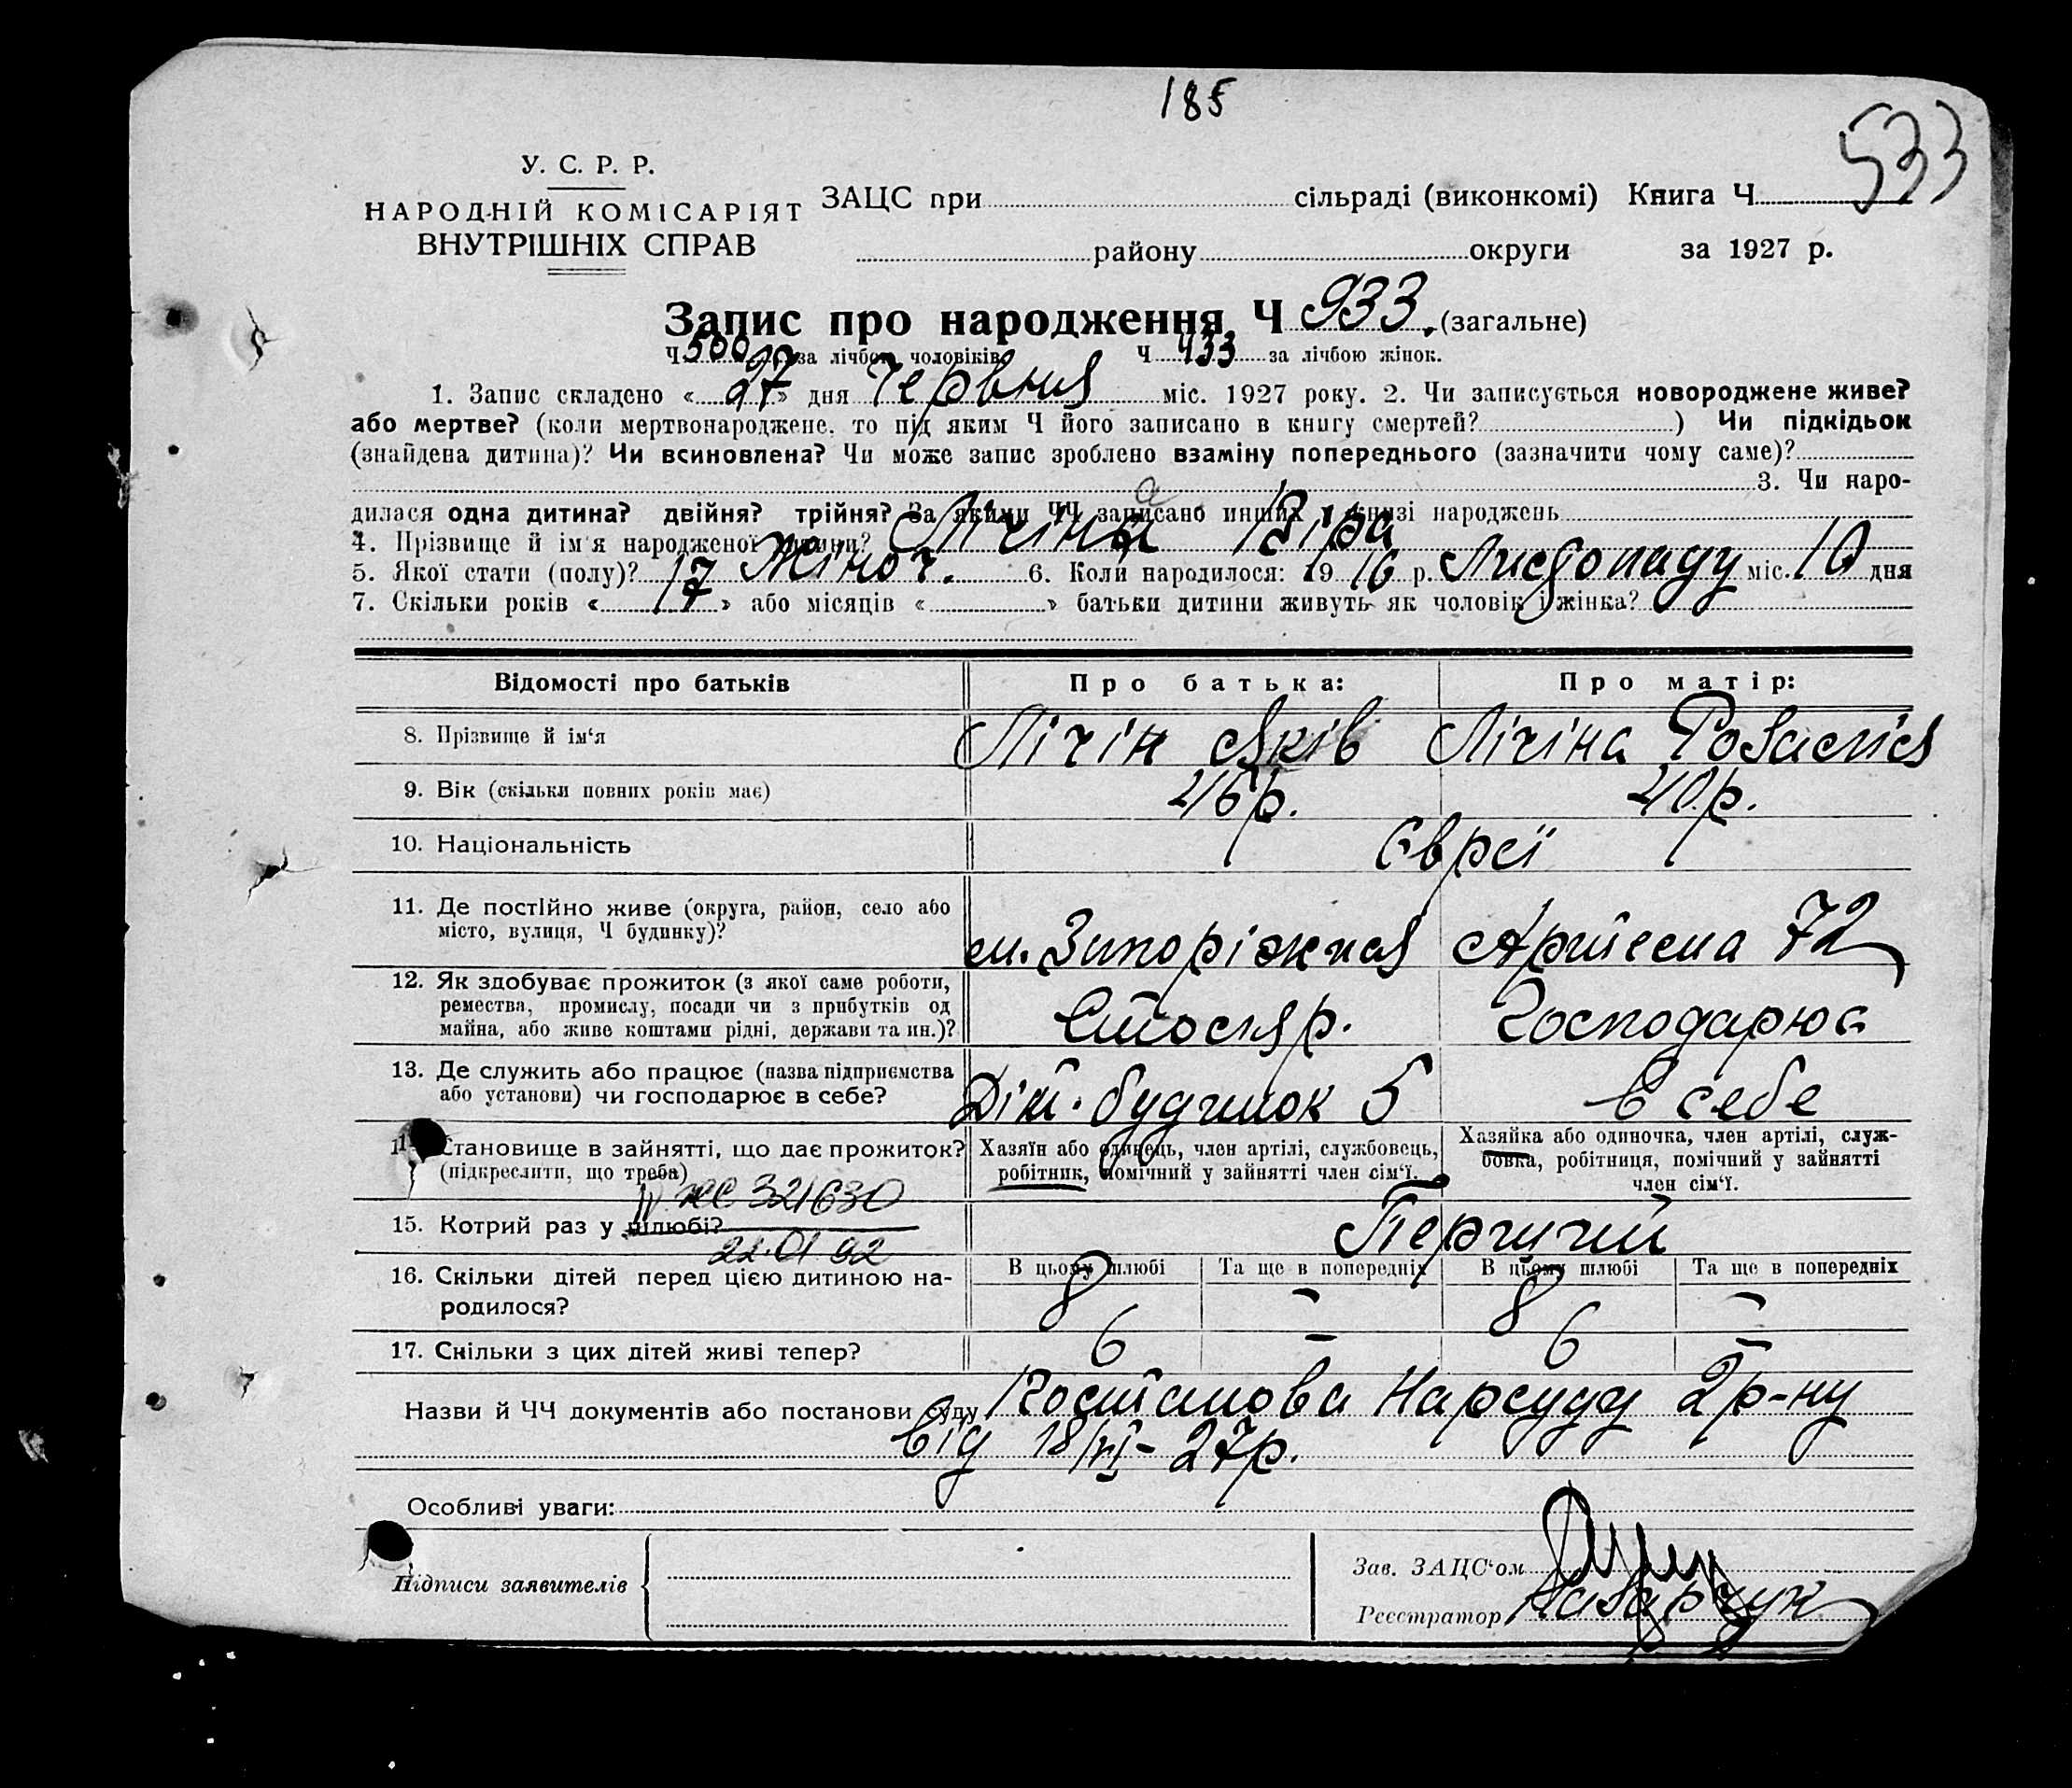 185
533
У. С. Р. Р.
НАРОДНІЙ КОМІСАРІЯТ
ВНУТРІШНІХ СПРАВ
ЗАЦС при сільраді (виконкомі) Книга Ч
району округи за 1927 р.
Запис про народження Ч 933. (загальне)
Ч 500 за лічбою чоловіків Ч 433 за лічбою жінок.
1. Запис складено « 27 » дня Червня міс. 1927 року. 2. Чи записується новороджене живе?
або мертве? (коли мертвонароджене, то під яким Ч його записано в книгу смертей? ) Чи підкідьок
(знайдена дитина)? Чи всиновлена? Чи може запис зроблено взаміну попереднього (зазначити чому саме)?
3. Чи наро-
дилася одна дитина? двійня? трійня? За якими ЧЧ записано инших у книзі народжень
4. Прізвище й ім'я народженої дитини? Лічіна Віра
5. Якої стати (полу)? Жіноч. 6. Коли народилося: 1916 р. Листопаду міс. 10 дня
7. Скільки років « 17 » або місяців « » батьки дитини живуть як чоловік і жінка?
Відомості про батьків Про батька: Про матір:
8. Прізвище й ім'я Лічін Яків Лічіна Розалія
9. Вік (скільки повних років має) 46 р. 40 р.
10. Національність Євреї
11. Де постійно живе (округа, район, село або
місто, вулиця, Ч будинку)?
м. Запоріжжя Артема 72
12. Як здобуває прожиток (з якої саме роботи,
ремества, промислу, посади чи з прибутків од
майна, або живе коштами рідні, держави та ин.)?
Столяр. Господарює
13. Де служить або працює (назва підприємства
або установи) чи господарює в себе?
Діт. будинок 5 в себе
Становище в зайнятті, що дає прожиток?
(підкреслити, що треба)
Хазяїн або одинець, член артілі, службовець,
робітник, помічний у зайнятті член сім'ї.
Хазяйка або одиночка, член артілі, служ-
бовка, робітниця, помічний у зайнятті
член сім'ї.
ЖС 321630
15. Котрий раз у шлюбі? Перший
22.01.92
16. Скільки дітей перед цією дитиною на-
родилося?
В цьому шлюбі Та ще в попередніх В цьому шлюбі Та ще в попередніх
8 – 8 –
17. Скільки з цих дітей живі тепер? 6 – 6 –
Назви й ЧЧ документів або постанови суду Постанова Нарсуду 2 р-ну
від 18/VI- 27 р.
Особливі уваги:
Підписи заявителів
Зав. ЗАЦС'ом
Реєстратор Назарчук